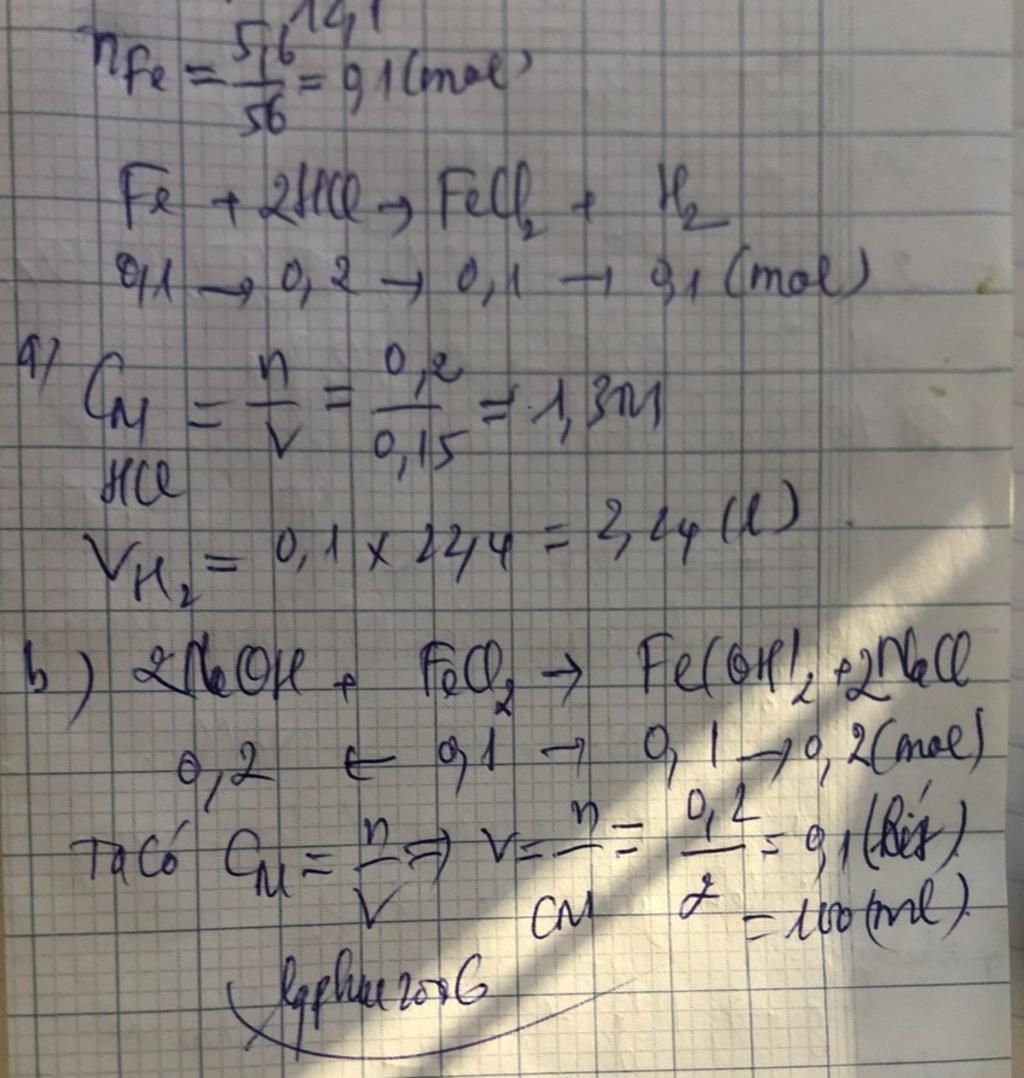 n_Fe = 5,6/56 = 0,1 (mol)
Fe + 2HCl → FeCl₂ + H₂
0,1 → 0,2 → 0,1 → 0,1 (mol)
a) C_M HCl = n/V = 0,2/0,15 = 1,3M
V_H₂ = 0,1 x 22,4 = 2,24 (l)
b) 2NaOH + FeCl₂ → Fe(OH)₂ + 2NaCl
0,2 ← 0,1 → 0,1 → 0,2 (mol)
Ta có C_M = n/V => V = n/CM = 0,2/2 = 0,1 (lít)
= 100 (ml)